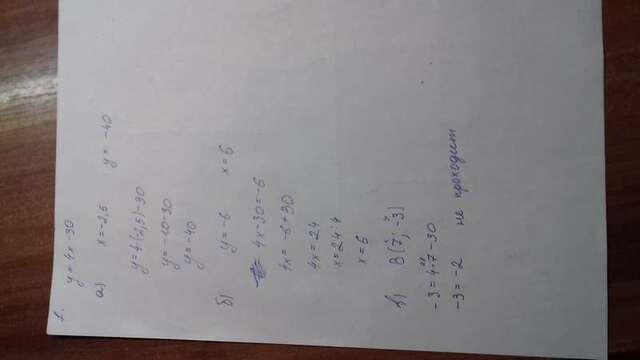 1. y=4x-30
а) x=-2,5 y=-40
y=4(-2,5)-30
y=-10-30
y=-40
б) y=-6 x=6
4x-30=-6
4x=-6+30
4x=24
x=24:4
x=6
в) B(7; -3)
-3=4·7-30
-3=-2 не проходит